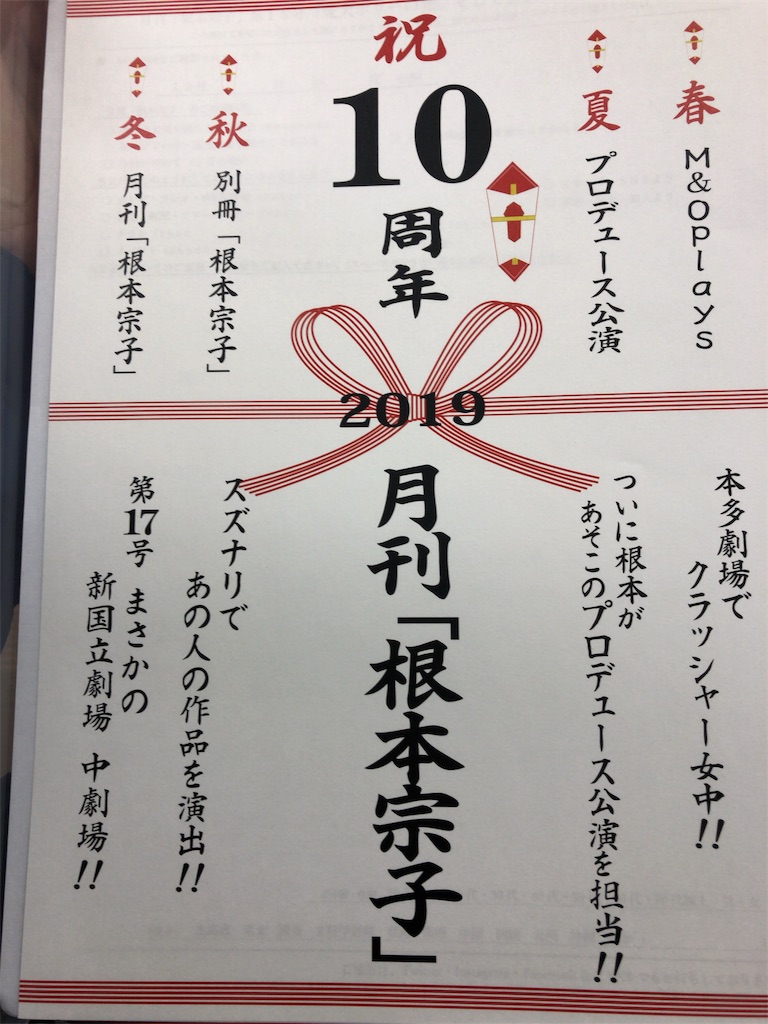 春
M&Oplays
本多劇場で
クラッシャー女中!!
夏
プロデュース公演
ついに根本が
あそこのプロデュース公演を担当!!
祝
10
周年
2019
月刊「根本宗子」
秋
別冊「根本宗子」
スズナリで
あの人の作品を演出!!
冬
月刊「根本宗子」
第17号 まさかの
新国立劇場 中劇場!!